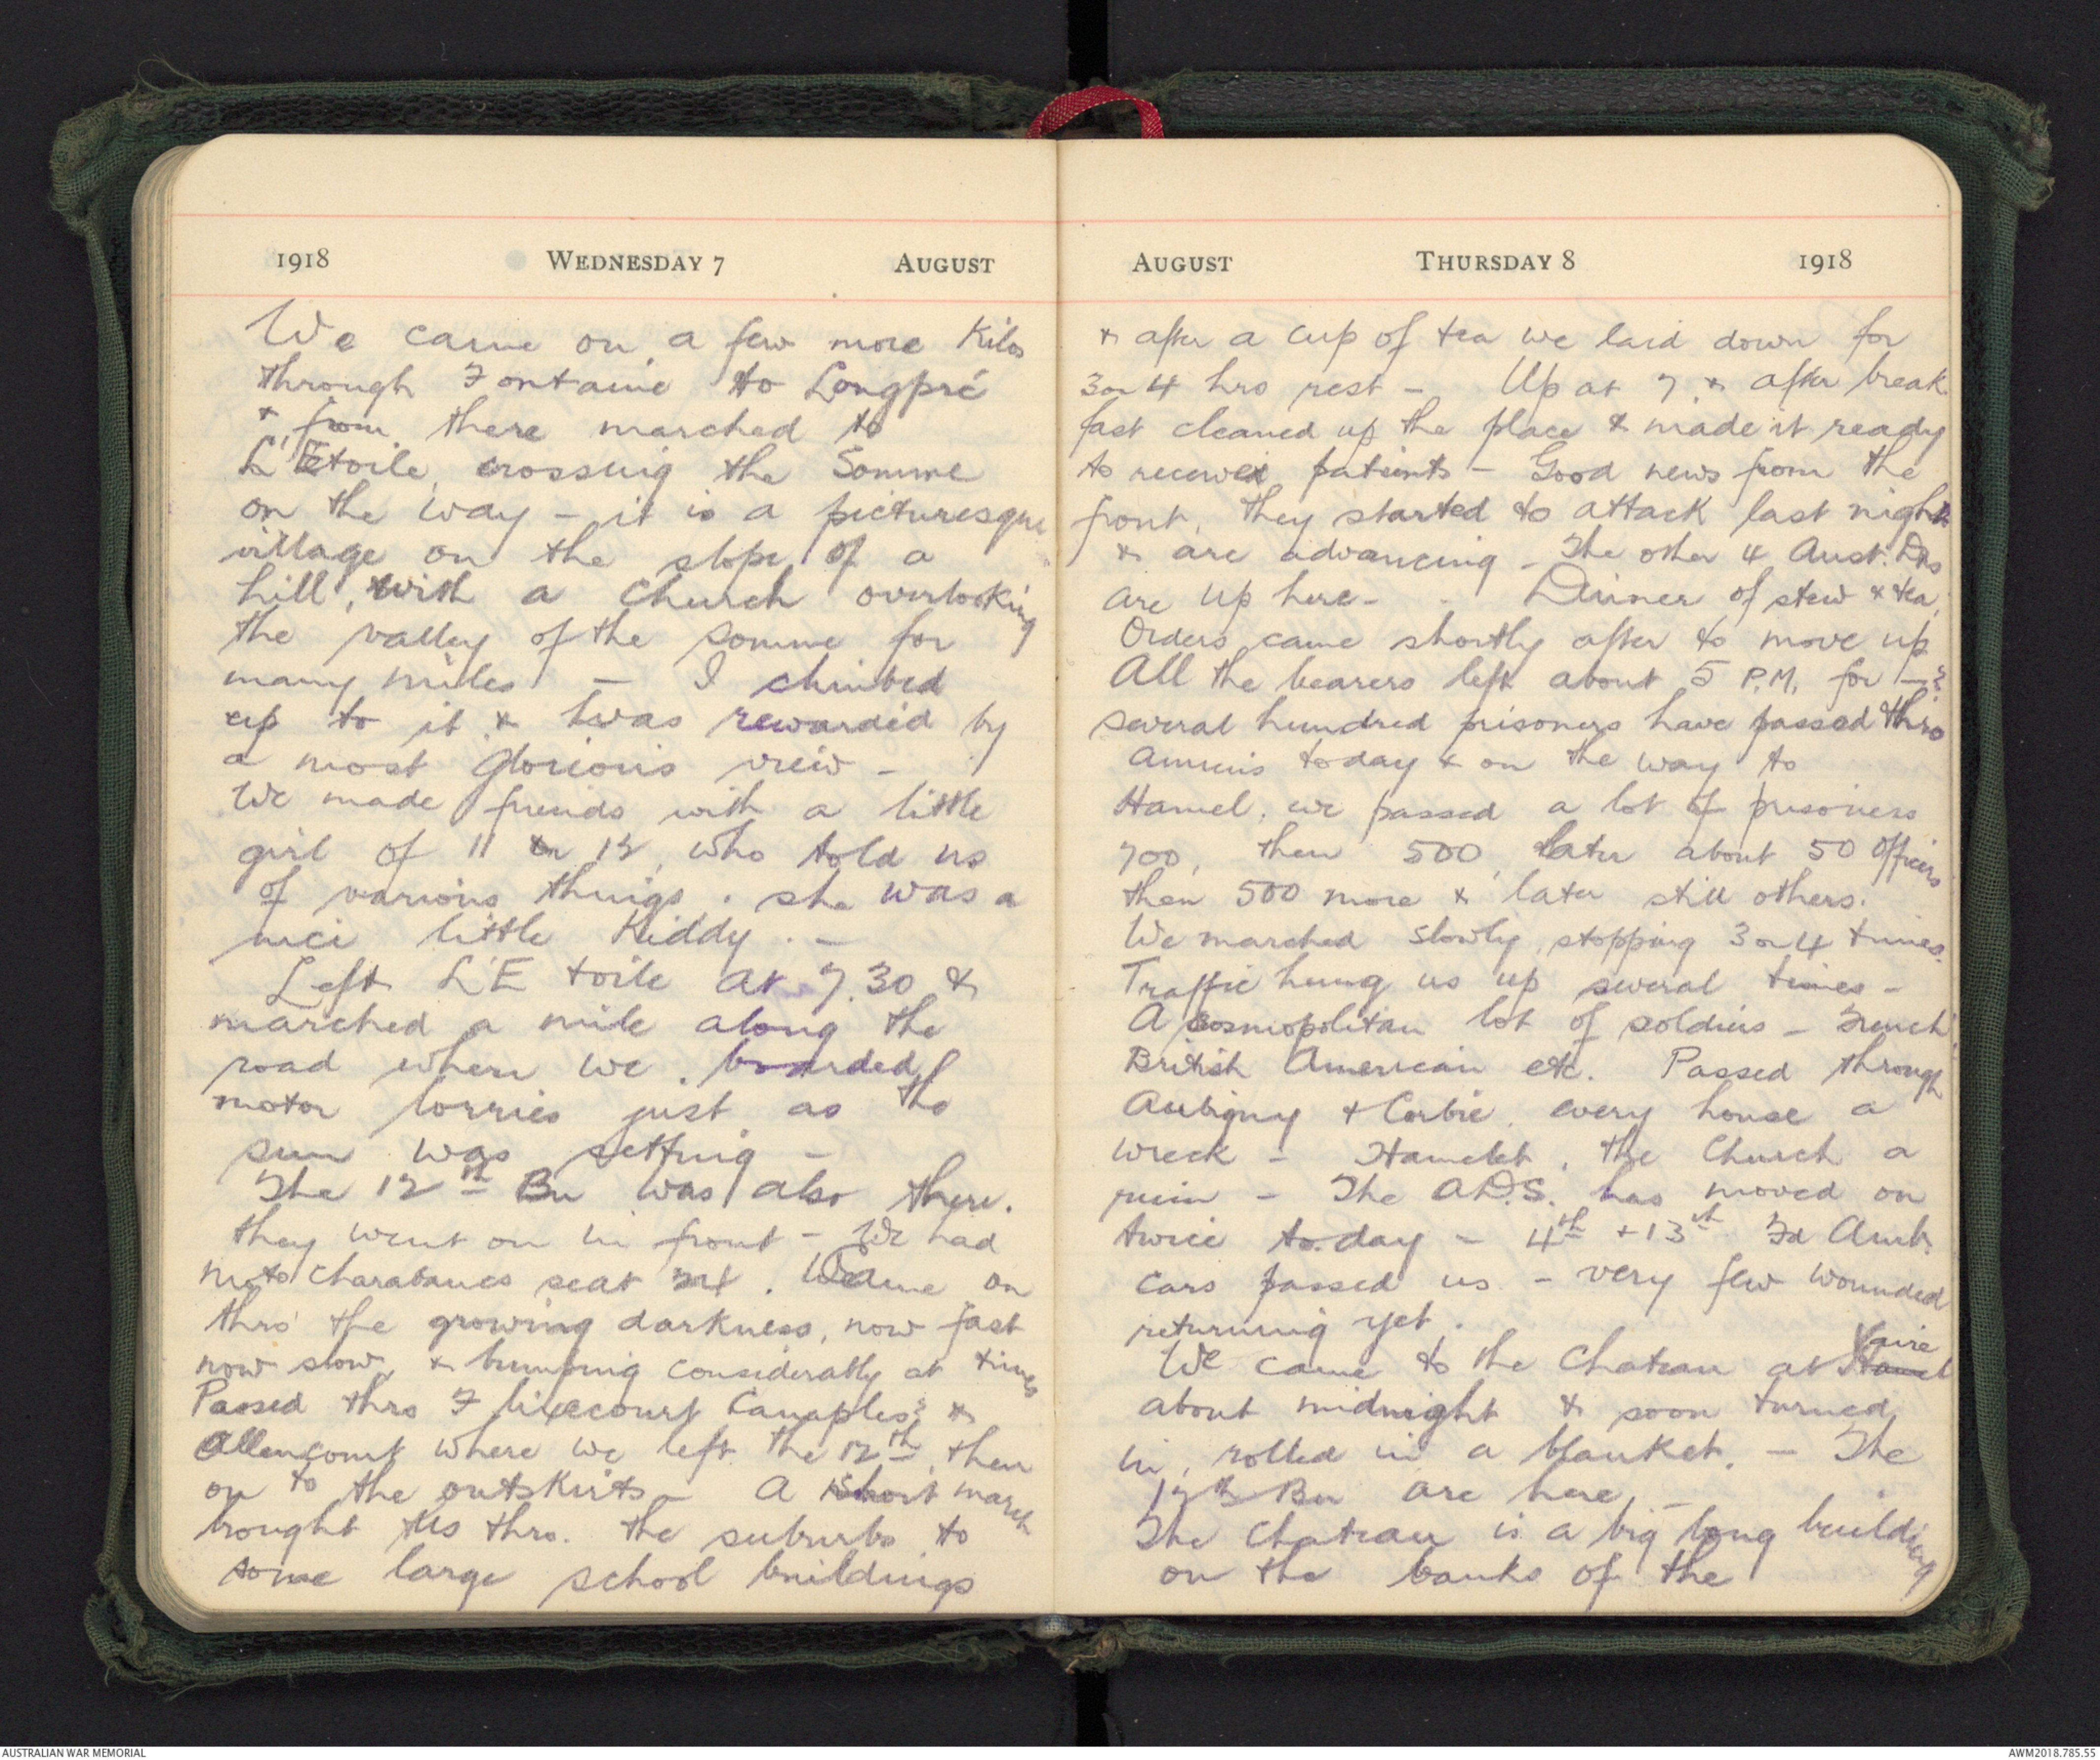 1918 WEDNESDAY 7 AUGUST
We came on a few more Kilos
through Fontaine to Longpré
& from there marched to
L'Etoile, crossing the Somme
on the way - it is a picturesque
village on the slope of a
hill, with a church overlooking
the valley of the Somme for
many miles - I climbed
up to it & was rewarded by
a most glorious view -
We made friends with a little
girl of 11 or 12, who told us
of various things. she was a
nice little Kiddy. -
Left L'Etoile at 7.30 &
marched a mile along the
road where we boarded
motor lorries just as the
sun was setting -
The 12th Bn was also there.
they went on in front - We had
moto charabancs seat 24. We came on
thro' the growing darkness, now fast
now slow, & bumping considerably at times
Passed thro Flixecourt Canaples? &
Allencourt where we left the 12th, then
on to the outskirts - A short march
brought us thro. the suburbs to
some large school buildings
AUGUST THURSDAY 8 1918
& after a cup of tea we laid down for
3 or 4 hrs rest - Up at 7. & after break
fast cleaned up the place & made it ready
to receive patients - Good news from the
front, they started to attack last night
& are advancing - The other 4 Aust. Divs
are up here - - Dinner of stew & tea.
Orders came shortly after to move up
All the bearers left about 5 P.M. for - ?
several hundred prisoners have passed thro
Amiens today & on the way to
Hamel, we passed a lot of prisoners
700, then 500, later about 50 officers
then 500 more & later still others.
We marched slowly, stopping 3 or 4 times.
Traffic hung us up several times -
A cosmopolitan lot of soldiers - French,
British American etc. Passed through
Aubigny & Corbie, every house a
wreck - Hamelet, the Church a
ruin - The A.D.S. has moved on
twice to-day - 4th + 13th Fd Amb.
cars passed us - very few wounded
returning yet.
We came to the Chateau at Hamel Vaire
about midnight & soon turned
in, rolled in a blanket. - The
Bn are here, -
The Chateau is a big long building
on the banks of the
AUSTRALIAN WAR MEMORIAL AWM2018.785.55